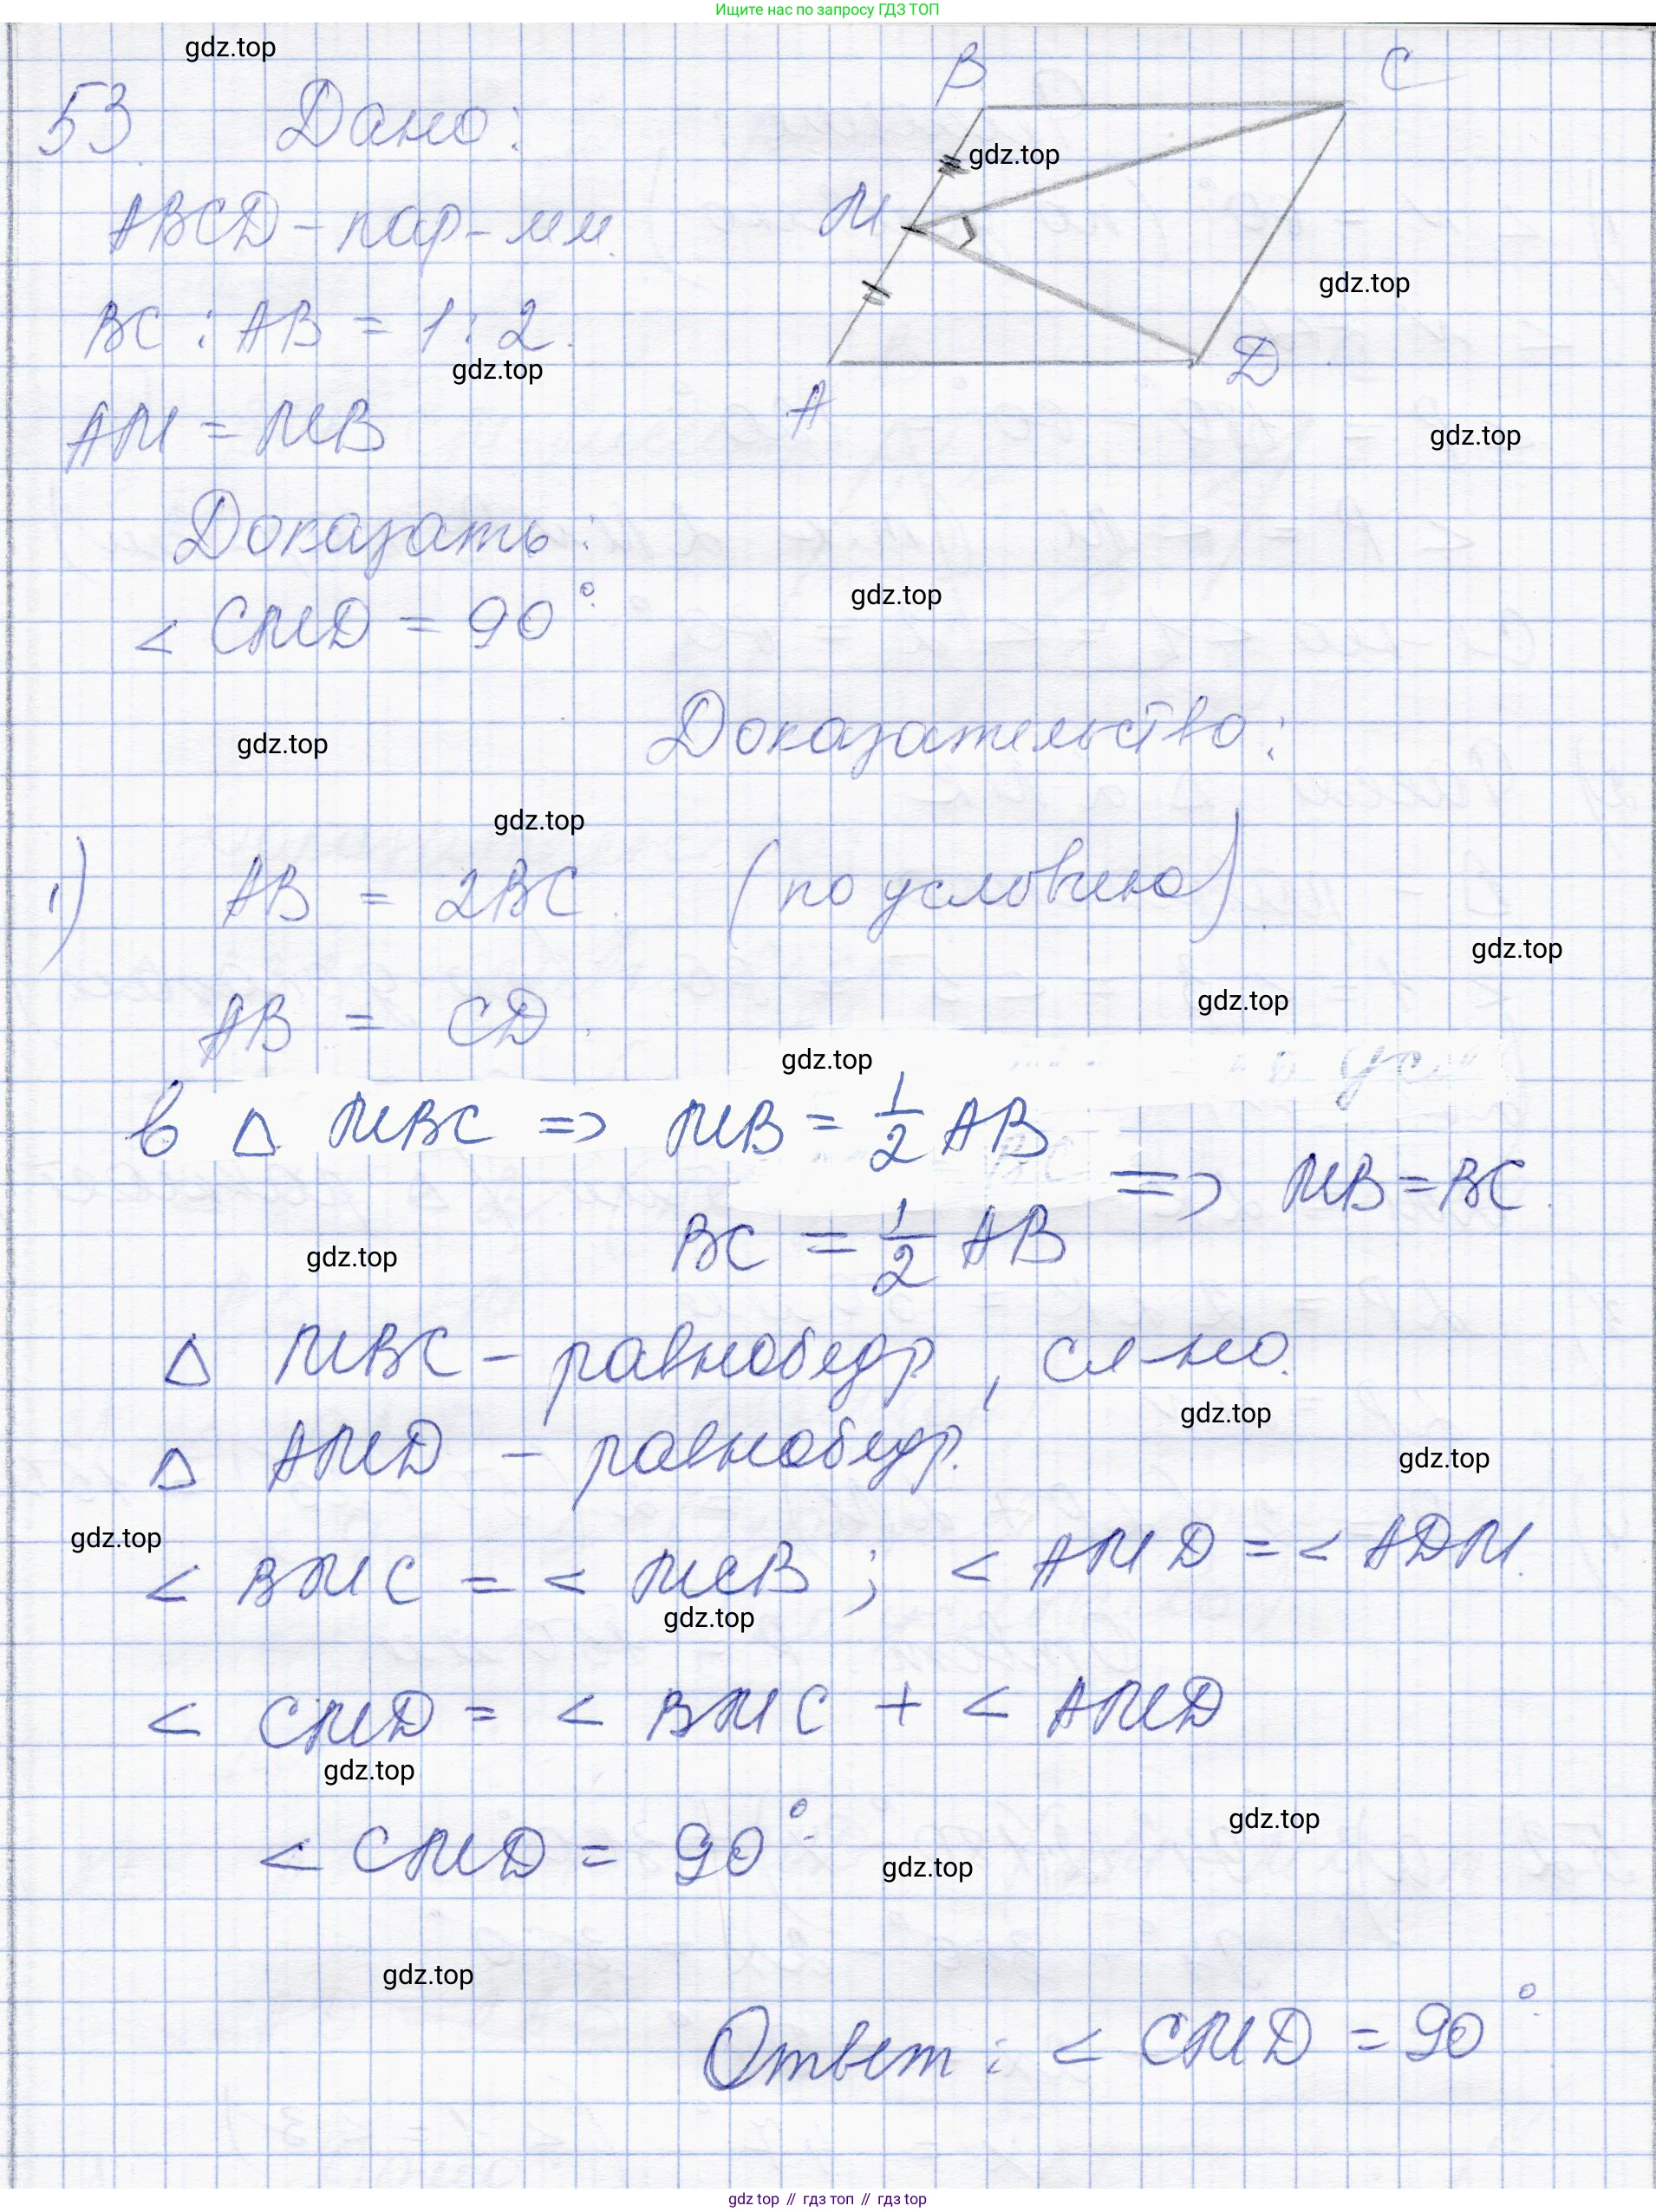 Ищите нас по запросу ГДЗ ТОП
gdz.top
53. Дано:
B
C
gdz.top
ABCD - пар-мм.
M
gdz.top
BC : AB = 1 : 2.
gdz.top
D
A
AM = MB
gdz.top
Доказать:
gdz.top
< CMD = 90°.
Доказательство:
gdz.top
gdz.top
1) AB = 2BC. (по условию).
gdz.top
gdz.top
AB = CD.
gdz.top
в △ MBC => MB = 1/2 AB
=> MB = BC.
BC = 1/2 AB
gdz.top
△ MBC - равнобедр, сл-но.
gdz.top
△ AMD - равнобедр.
gdz.top
gdz.top
< BMC = < MCB ; < AMD = < ADM.
gdz.top
< CMD = < BMC + < AMD
gdz.top
gdz.top
< CMD = 90°.
gdz.top
gdz.top
Ответ : < CMD = 90°.
gdz top // гдз топ // gdz top